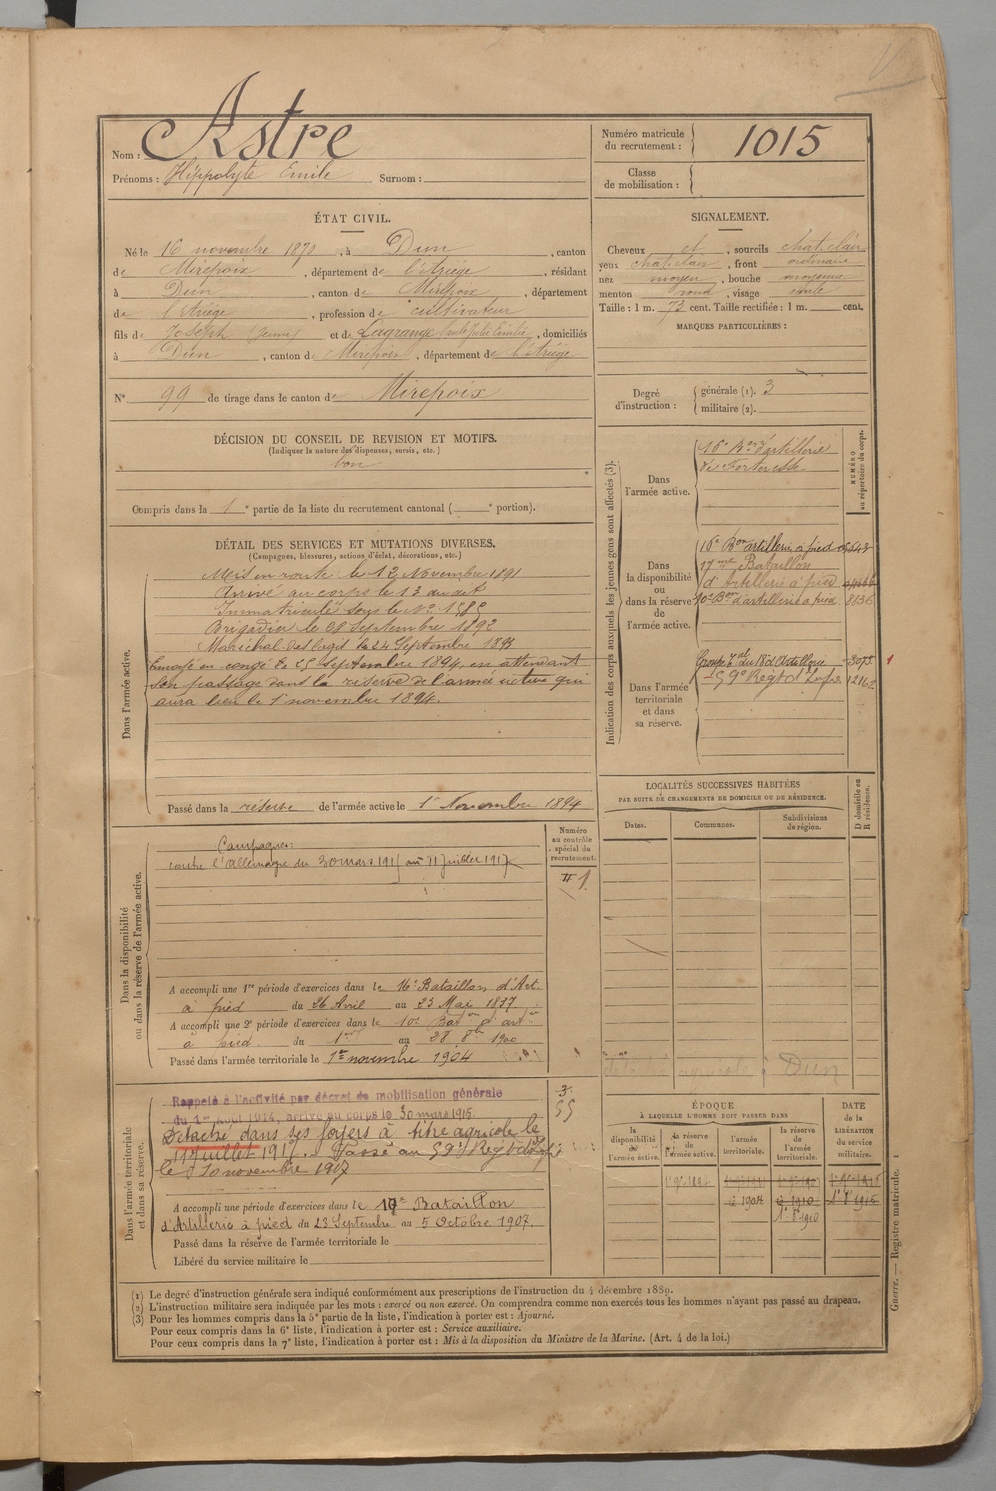 Nom : Astre
Prénoms : Hippolyte Emile Surnom :
Numéro matricule du recrutement : 1015
Classe de mobilisation :
ÉTAT CIVIL.
Né le 16 novembre 1870, à Dun, canton
de Mirepoix, département de l'Ariège, résidant
à Dun, canton de Mirepoix, département
de l'Ariège, profession de cultivateur
fils de Joseph (Jeune) et de Lagrange Julie Emilie, domiciliés
à Dun, canton de Mirepoix, département de l'Ariège
N° 99 de tirage dans le canton de Mirepoix
DÉCISION DU CONSEIL DE REVISION ET MOTIFS.
(Indiquer la nature des dispenses, sursis, etc.)
bon
Compris dans la 1e partie de la liste du recrutement cantonal ( e portion).
SIGNALEMENT.
Cheveux et, sourcils chat. clair
yeux chat. clair, front ordinaire
nez moyen, bouche moyenne
menton rond, visage ovale
Taille : 1 m. 73 cent. Taille rectifiée : 1 m. cent.
MARQUES PARTICULIÈRES :
Degré d'instruction : générale (1). 3
militaire (2).
DÉTAIL DES SERVICES ET MUTATIONS DIVERSES.
(Campagnes, blessures, actions d'éclat, décorations, etc.)
Dans l'armée active.
Mis en route le 12 Novembre 1891
Arrivé au corps le 13 du dit
Immatriculé sous le N° 1580
Brigadier le 28 Septembre 1892
Maréchal des logis le 24 Septembre 1893
Envoyé en congé le 25 Septembre 1894, en attendant
son passage dans la réserve de l'armée active qui
aura lieu le 1er novembre 1894.
Passé dans la réserve de l'armée active le 1er Novembre 1894
Indication des corps auxquels les jeunes gens sont affectés (3).
NUMÉRO au répertoire du corps.
Dans l'armée active.
16e Bon d'artillerie
de Forteresse
Dans la disponibilité ou dans la réserve de l'armée active.
16e Bon artillerie à pied
17me Bataillon
d'Artillerie à pied
10e Bon d'artillerie à pied 8836
Dans l'armée territoriale et dans sa réserve.
Groupe tal du Bd d'Artillerie 3075 1
59e Regt d'Infie
LOCALITÉS SUCCESSIVES HABITÉES
PAR SUITE DE CHANGEMENTS DE DOMICILE OU DE RÉSIDENCE.
Dates. Communes. Subdivisions de région. D domicile ou R résidence.
détaché agricole à Dun
Dans la disponibilité ou dans la réserve de l'armée active.
Numéro au contrôle spécial du recrutement.
Campagnes :
contre l'Allemagne du 30 mars 1915 au 11 juillet 1917
A accompli une 1re période d'exercices dans le 16e Bataillon d'Art.
à pied du 26 Avril au 23 Mai 1897
A accompli une 2e période d'exercices dans le 10e Baton d'artie
à pied du 1er au 28 8bre 1900
Passé dans l'armée territoriale le 1er novembre 1904
Dans l'armée territoriale et dans sa réserve.
3
55
Rappelé à l'activité par décret de mobilisation générale
du 1er Août 1914, arrivé au corps le 30 mars 1915.
Détaché dans ses foyers à titre agricole le
11 juillet 1917. Passé au 59e Regt d'Infie
le 10 novembre 1917
A accompli une période d'exercices dans le 19e Bataillon
d'Artillerie à pied du 23 Septembre au 5 Octobre 1907.
Passé dans la réserve de l'armée territoriale le
Libéré du service militaire le
ÉPOQUE
À LAQUELLE L'HOMME DOIT PASSER DANS
la disponibilité de l'armée active. la réserve de l'armée active. l'armée territoriale. la réserve de l'armée territoriale.
DATE de la LIBÉRATION du service militaire.
(1) Le degré d'instruction générale sera indiqué conformément aux prescriptions de l'instruction du 4 décembre 1889.
(2) L'instruction militaire sera indiquée par les mots : exercé ou non exercé. On comprendra comme non exercés tous les hommes n'ayant pas passé au drapeau.
(3) Pour les hommes compris dans la 5e partie de la liste, l'indication à porter est : Ajourné.
Pour ceux compris dans la 6e liste, l'indication à porter est : Service auxiliaire.
Pour ceux compris dans la 7e liste, l'indication à porter est : Mis à la disposition du Ministre de la Marine. (Art. 4 de la loi.)
Guerre. — Registre matricule. 1